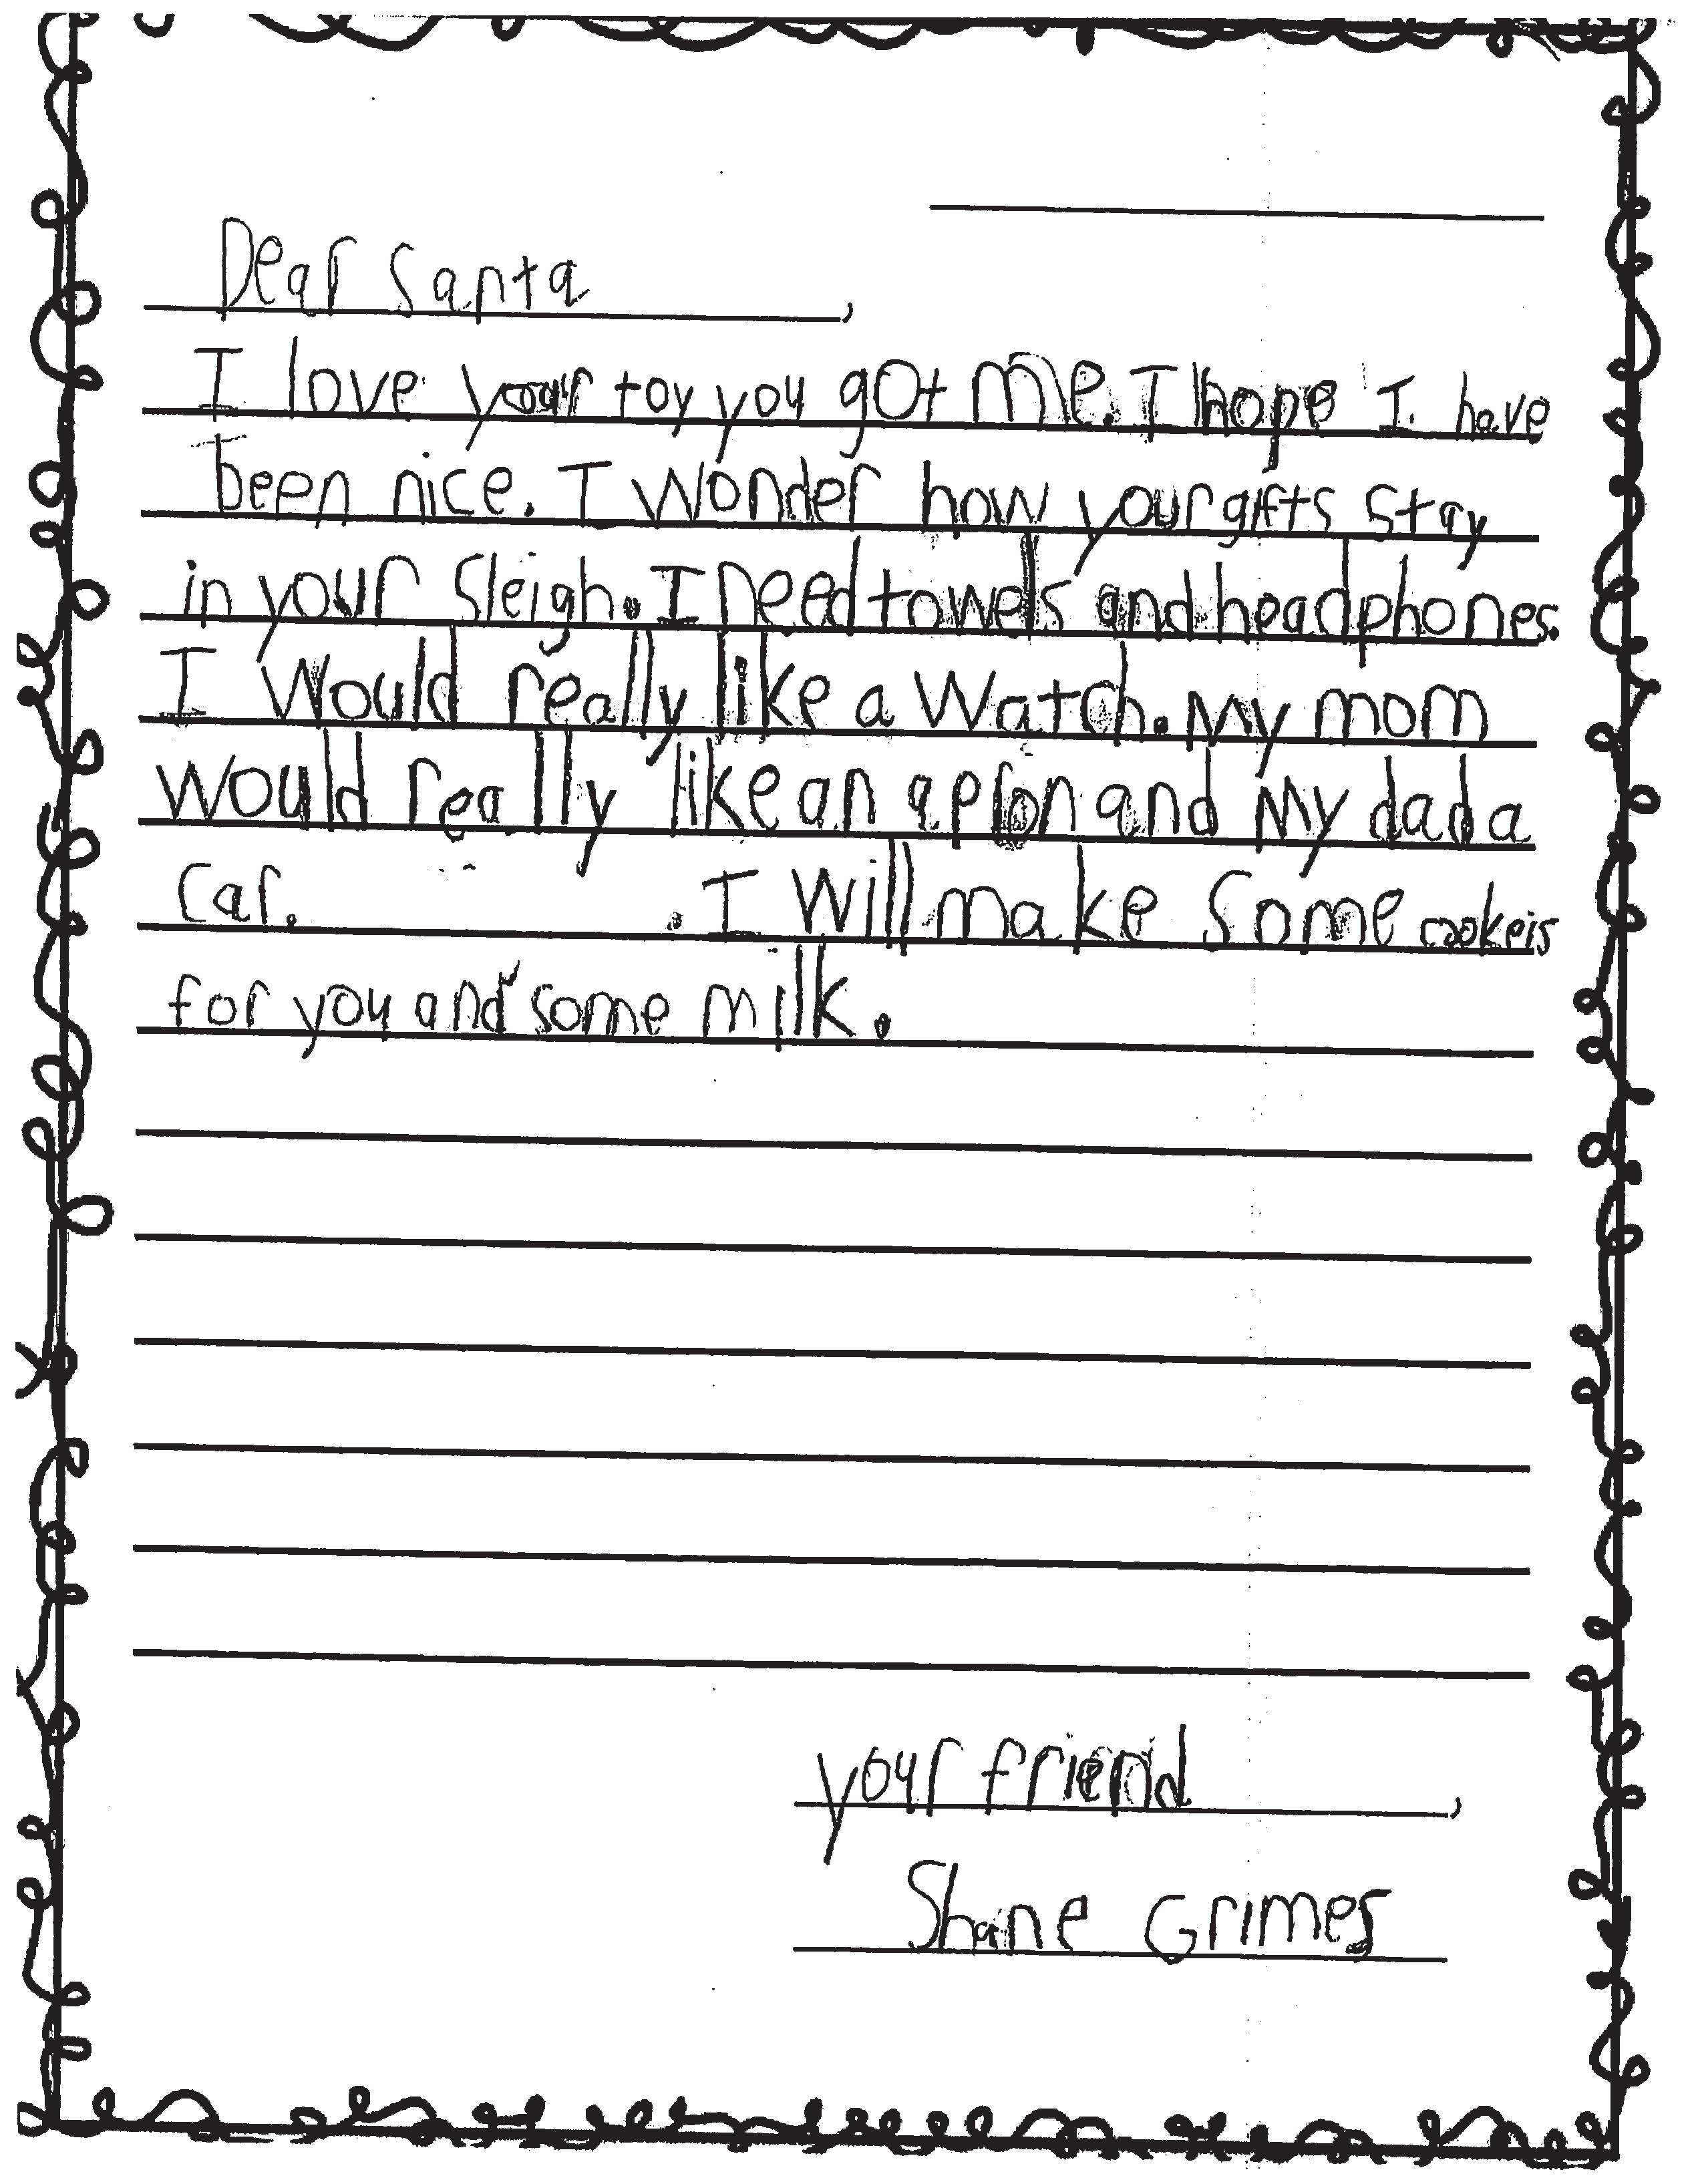 Dear Santa,
I love your toy you got me. I hope I have
been nice. I wonder how your gifts stay
in your sleigh. I need towels and headphones.
I would really like a watch. My mom
would really like an apron and my dad a
car. . I will make some cookeis
for you and some milk.
your friend,
Shane Grimes